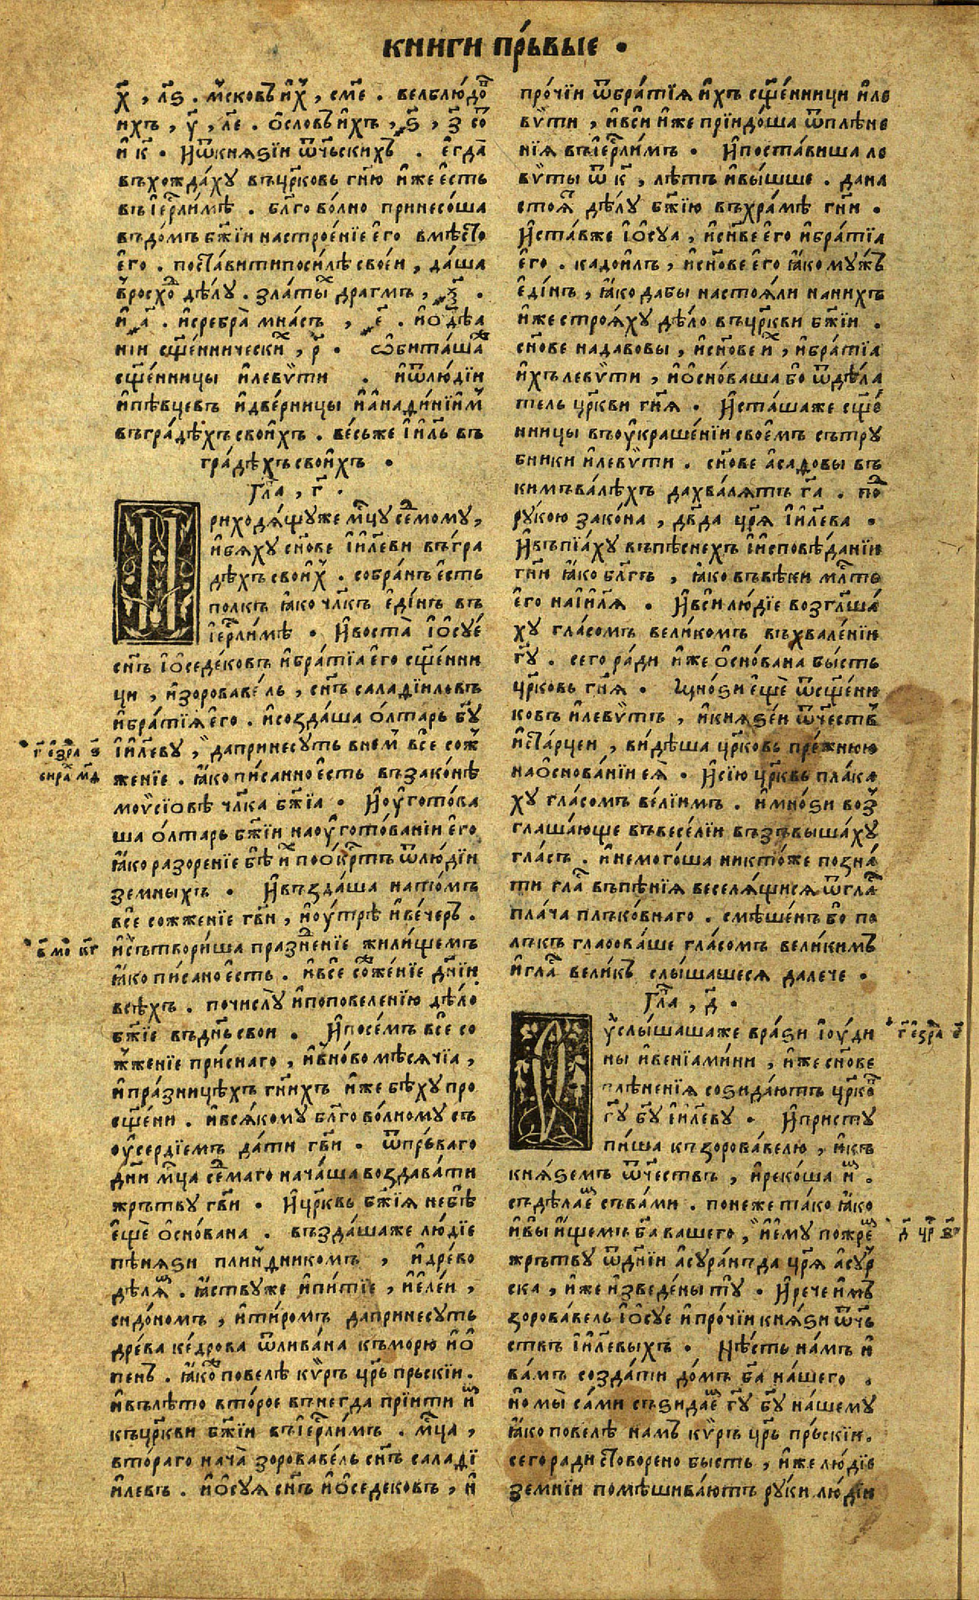 книги пр́ьвые •
х҃ , л҃ѕ . м҆сковъ и҆́х , см҃е . велблю́дѡ
ихъ , у҃ , л҃е . ѻ҆словъ и҆́хъ , ѕ҃ , з҃ со
и҆ к҃ . И҆ѿкнѧѕіи ѿч҃ьскихъ . е҆гда̀
въхожда́ху въцр҃ковь гн҃ю и҆же є҆сть
въі҆ер҃лимѣ . бл҃го во́лно принесо́ша
въдо́мъ бж҃іи настрое́нїе є҆го̀ вмѣ́сто
є҆го . поста́витипоси́лѣ своє́и , да́ша
дѣ́лу . зла́ты драгмъ ,
и҆ . и҆сребра̀ мна́съ , е҃ . и҆ѻ҆дѣ́а
нїи сщ҃е́ннически , р҃ . ѻ҆бита́ша
сщ҃е́нницы и҆леѵ҆ти . и҆ѿлю́дїи
и҆пѣ́вцевъ и҆две́рницы и҆анади́нїим
въгра́дѣхъ свои́хъ . ве́сьже і҆и҃ль въ
гра́дѣхъ свои́хъ •
Гл҃а , г҃ .
риходѧ́щуже мц҃у седмо́му ,
и҆бѧ́ху сн҃ове і҆и҃леви въгра
дѣхъ свои́х . собра́нъ є҆сть
полкъ ꙗ҆́ко чл҃къ є҆ди́нъ въ
і҆ер҃ли́мѣ • И҆воста̀ і҆ѻ҆суе́
сн҃ъ і҆ѻ҆седе́ковъ и҆бра́тїа є҆го сщ҃е́нни
ци , и҆зорова́ве́ль , сн҃ъ салади́иловъ
и҆бра́тїѧ є҆го . и҆созда́ша о҆лта́рь бг҃у
і҆и҃леву , дапринесу́ть внем̀ всѐ сож
же́нїе . ꙗ҆́ко пи́санно є҆сть въза́ко́нѣ
моѵ҆сїо́вѣ чл҃ка бж҃їа • И҆оу҆гото́ва
ша о҆лта́рь бж҃їи наоу҆гото́ванїи є҆го̀
ꙗ҆́ко разоре́нїе бѣ̀ и҆м поо́кр҃тъ ѿлю́дїи
земны́хъ • И҆въз̾да́ша нато́мъ
всѐ сожже́нїе гв҃и , и҆оу́трѣ и҆ве́черъ .
и҆сътвори́ша праз̾не́нїе жили́щемъ
ꙗ҆́ко пи́сано є҆сть . и҆всѐ соже́нїе дн҃їи
всѣ́хъ . почисл̾у и҆поповеле́нїю дѣ́ло
бж҃їе въдн҃ь свои . И҆посе́мъ всѐ со
ж̾же́нїе при́снаго , и҆вно́во мѣ́сячїа ,
и҆пра́зницѣхъ гн҃ихъ и҆́же бѣ́ху про
сщ҃ени . и҆всѧ́кому бл҃го во́лному съ
оу҆се́рдїемъ да́ти гв҃и . ѿпр́ьваго
дн҃и мц҃а се́дмаго нача́ша воздава́ти
жрътву гв҃и • И҆цр҃квь бж҃їѧ небѣ̀
є҆щѐ ѻ҆сно́вана . въз̾да́шаже лю́дїе
пѣ́нѧѕи плин̾дникомъ , и҆дре́во
дѣлѧм . ꙗ҆ствуже и҆пи́тїе , и҆е҆ле́и ,
сидо́номъ , и҆ти́ромъ дапринесу́ть
дре́ва ке́дрова ѿлива́на къмо́рю и҆ѻ҆
пенъ . ꙗ҆́коже повелѣ̀ кѵ҆ръ цр҃ь прьскїи .
и҆възлѣ́то второ́е вънегда прїити им
къцр҃кви бж҃їи въі҆ер҃ли́мъ . мц҃а ,
втора́го нача̀ зорова́ве́ль сн҃ъ салади́
и҆левъ . и҆ѻ҆суѧ сн҃ъ і҆ѻ҆седековъ , и҆
про́чїи ѿбра́тїѧ и҆хъ сщ҃е́нници и҆ле
вѵ҆ти , и҆вси и҆́же прїидо́ша ѿплѣне
нїѧ въі҆ер҃ли́мъ • И҆поста́виша ле
вѵ҆ты ѿ к҃ , лѣ́тъ и҆вы́шше . дана
стоѧ дѣ́лу бж҃їю въхра́мѣ гн҃и •
И҆ста́вже і҆ѻ҆суа , и҆сн҃ве є҆го и҆бра́тїа
є҆го . кадои́лъ , и҆сн҃ове є҆го ꙗ҆́ко му́жъ
є҆ди́нъ , ꙗ҆́ко дабы настоѧ́ли нани́хъ
и҆́же строѧ́ху дѣ́ло въцр҃кви бж҃їи .
сн҃ове надавовы , и҆сн҃ове их , и҆бра́тїа
и҆хъ левѵ҆ти , и҆ѻ҆сно́ваша бо ѿдѣ́ла
тель цр҃кви гн҃ѧ • И҆ста́шаже сщ҃е
нницы въоу҆краше́нїи свое́мъ сътру
бники и҆левѵ҆ти . сн҃ове а҆садовы въ
кимъва́лѣхъ дахва́лѧтъ га҃ . под
рукою зако́на , дв҃да цр҃ѧ і҆и҃лева •
И҆въпїа́ху въпѣ́снехъ і҆и҆сповѣ́данїи
гн҃и ꙗ҆́ко бл҃гъ , ꙗ҆́ко въвѣ́ки мл҃ть
є҆го наі҆и҃лѧ • И҆вси лю́дїе возгл҃ша́
ху гла́сомъ вели́комъ въхвале́нїи
гу҃ . сего́ ра́ди и҆́же ѻ҆сно́вана бы́сть
цр҃ковь гн҃ѧ • Мно́ѕи є҆щѐ ѿсщ҃е́ни
ковъ и҆левѵ҆тъ , и҆кнѧѕе́и ѿче́ствъ
и҆ста́рцеи , ви́дѣша цр҃ковь пре́жнюю
наѻ҆снова́нїи еѧ̀ • И҆сїю цр҃квь пла́ка
ху гла́сомъ ве́лїимъ . и҆мно́ѕи воз
глаша́юще въвесе́лїи възвыша́ху
гла́съ . и҆немого́ша никто́же позна́
ти гла въпѣ́нїѧ веселѧ́щисѧ ѿгла
пла́ча плько́внаго . смѣ́шенъ бо по
лкъ гласова́ше гла́сомъ вели́кимъ
и҆гла вели́къ слы́шашесѧ дале́че •
Гл҃а , д҃ .
у҆слы́шашаже вра́ѕи і҆оу́ди
ны и҆венїами́ни , и҆́же сн҃ове
плѣне́нїѧ соѕида́ютъ цр҃ко
гу҃ бг҃у і҆и҃леву • И҆присту
пи́ша къзорова́велю , и҆къ
кнѧѕе́мъ ѿче́ствъ , и҆реко́ша им .
съдѣ́лае съва́ми . поне́же та́ко ꙗ҆́ко
и҆вы и҆́щемъ бг҃а ва́шего , и҆є҆му̀ пожре
жрътву ѿдн҃їи а҆сура́нъда цр҃ѧ а҆сур
ска , и҆́же и҆зведе́ны ту • И҆рече и҆мъ
зорова́вель і҆ѻ҆суе и҆про́чїи кнѧѕи ѿчь
ствъ і҆и҃левы́хъ • Нѣ́сть на́мъ и҆
ва́мъ созда́ти до́мъ бг҃а на́шего .
но мы̀ са́ми съѕида́е гу҃ бг҃у на́шему
ꙗ҆́ко повелѣ̀ намъ кѵ҆ръ цр҃ь прьскїи .
сего́ ради сътворено бы́сть , и҆́же лю́дїе
земнїи помѣ́шива́ютъ ру́ки лю́дїи
г҃ е҆зра ѕ҃
сира м҃ѳ
в҃ мо к҃г
г҃ е҆зра е҃
д҃ цр҃